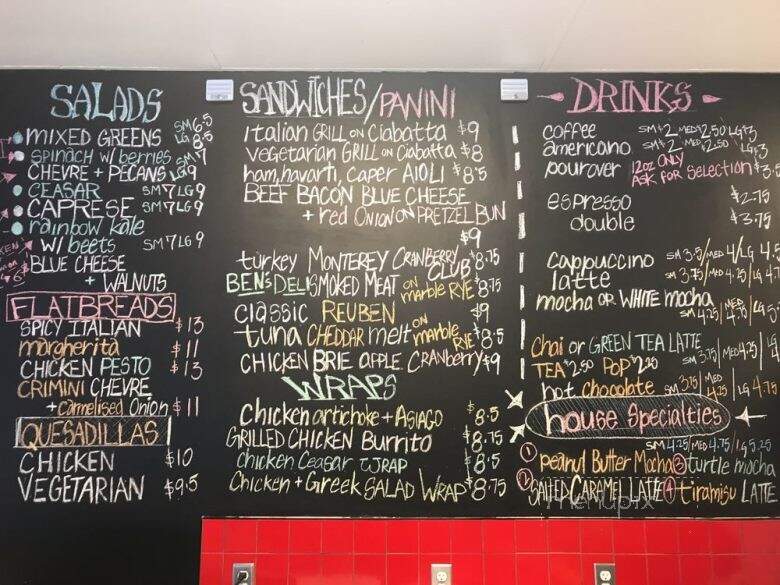 SALADS
MIXED GREENS SM 6.5 LG 8.5
spinach w/ berries SM 7
CHEVRE + PECANS LG 9
CEASAR SM 7 LG 9
CAPRESE SM 7 LG 9
rainbow kale
w/ beets SM 7 LG 9
BLUE CHEESE
+ WALNUTS
FLATBREADS
SPICY ITALIAN $13
margherita $11
CHICKEN PESTO $13
CRIMINI CHEVRE
+ carmelised Onion $11
QUESADILLAS
CHICKEN $10
VEGETARIAN $9.5
SANDWICHES/PANINI
italian GRILL ON Ciabatta $9
vegetarian GRILL ON Ciabatta $8
ham, havarti, caper AIOLI $8.5
BEEF BACON BLUE CHEESE
+ red ONION ON PRETZEL BUN
$9
turkey MONTEREY CRANBERRY CLUB $8.75
BEN'S DELI SMOKED MEAT ON marble RYE $8.75
classic REUBEN $9
tuna CHEDDAR melt ON marble RYE $8.5
CHICKEN BRIE apple cranberry $9
WRAPS
chicken artichoke + ASIAGO $8.5
GRILLED CHICKEN Burrito $8.75
chicken Ceasar WRAP $8.5
Chicken + Greek SALAD WRAP $8.75
DRINKS
coffee SM $2 MED 2.50 LG $3
americano SM $2 MED $2.50 LG $3
pourover 12oz ONLY ASK FOR SELECTION $3.
espresso $2.75
double $3.75
cappuccino SM 3.5/MED 4/LG 4.5
latte SM 3.75/MED 4.25/LG 4.
mocha OR WHITE mocha SM 4.25/MED 4.75/LG 5.
chai or GREEN TEA LATTE SM 3.75/MED 4.25/L
TEA $2.50 POP $2.20
hot chocolate SM 3.75/MED 4.25/LG 4.75
house Specialties
SM 4.25/MED 4.75/LG 5.25
1 peanut Butter Mocha 3 turtle mocha
2 SALTED CARAMEL LATTE 4 tiramisu LATTE
menupix